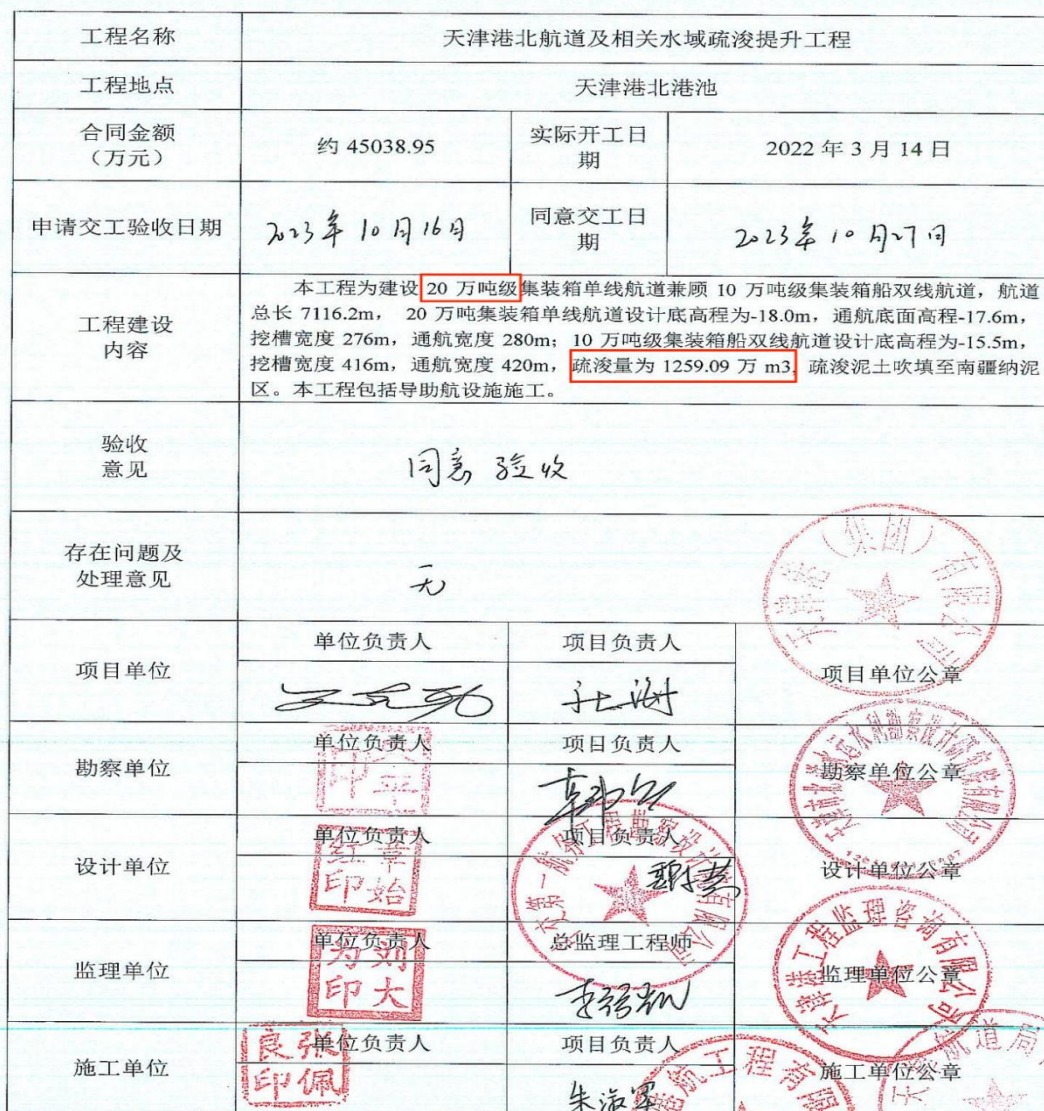 工程名称 天津港北航道及相关水域疏浚提升工程
工程地点 天津港北港池
合同金额
（万元） 约 45038.95 实际开工日
期 2022 年 3 月 14 日
申请交工验收日期 2023年10月16日 同意交工日
期 2023年10月27日
工程建设
内容
本工程为建设 20 万吨级集装箱单线航道兼顾 10 万吨级集装箱船双线航道，航道
总长 7116.2m， 20 万吨集装箱单线航道设计底高程为-18.0m，通航底面高程-17.6m，
挖槽宽度 276m，通航宽度 280m；10 万吨级集装箱船双线航道设计底高程为-15.5m，
挖槽宽度 416m，通航宽度 420m，疏浚量为 1259.09 万 m3，疏浚泥土吹填至南疆纳泥
区。本工程包括导助航设施施工。
验收
意见 同意验收
存在问题及
处理意见 无
天津港（集团）有限公司
项目单位 单位负责人 项目负责人 项目单位公章
勘察单位 单位负责人 项目负责人 勘察单位公章
设计单位 单位负责人 项目负责人 设计单位公章
章始
红印
监理单位 单位负责人 总监理工程师 监理单位公章
刘大
为印
天津港工程监理咨询有限公司
施工单位 单位负责人 项目负责人 施工单位公章
张佩
良印